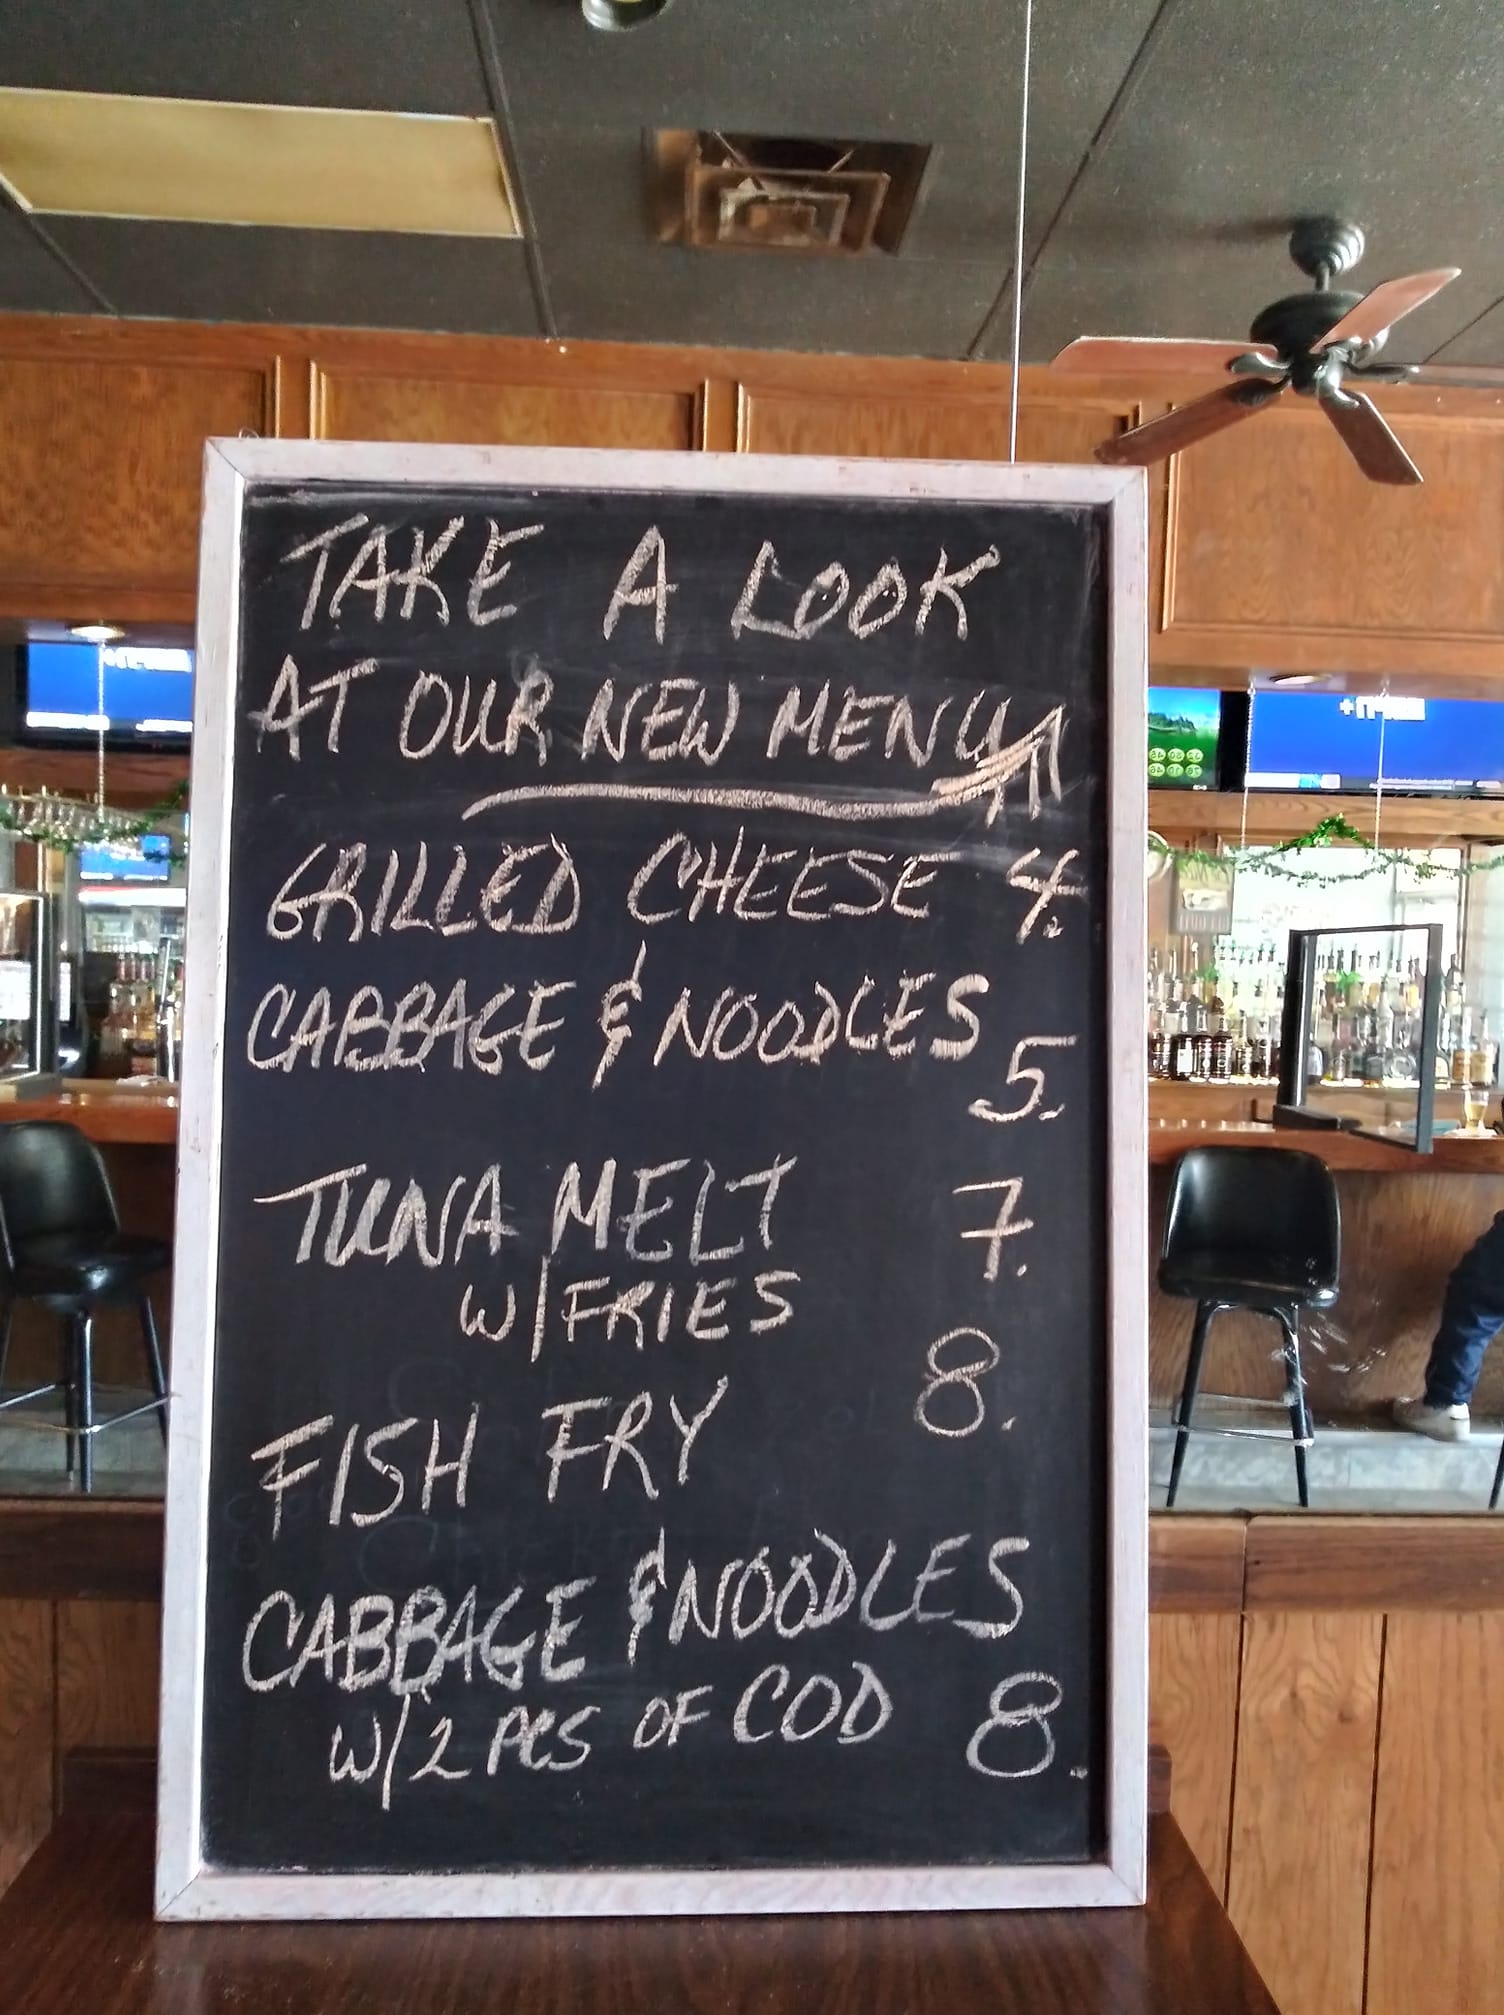 TAKE A LOOK
AT OUR NEW MENU!!
GRILLED CHEESE 4.
CABBAGE & NOODLES
5.
TUNA MELT 7.
W/FRIES
FISH FRY 8.
CABBAGE & NOODLES
W/2 PCS OF COD 8.